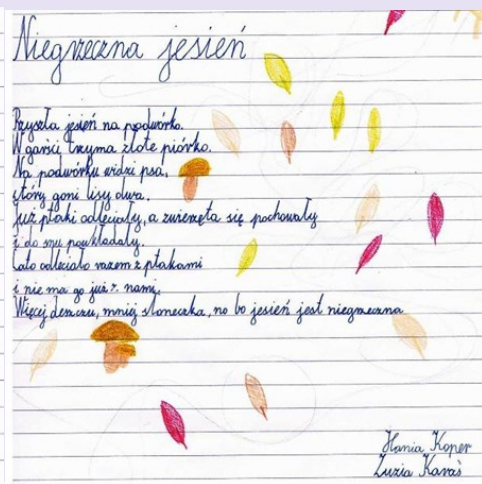 Niegrzeczna jesień
Przyszła jesień na podwórko.
W garści trzyma złote piórko.
Na podwórku widzi psa,
który goni lisy dwa.
Już ptaki odleciały, a zwierzęta się pochowały
i do snu poukładały.
Lato odleciało razem z ptakami
i nie ma go już z nami.
Więcej deszczu, mniej słoneczka, no bo jesień jest niegrzeczna
Hania Koper
Zuzia Karaś